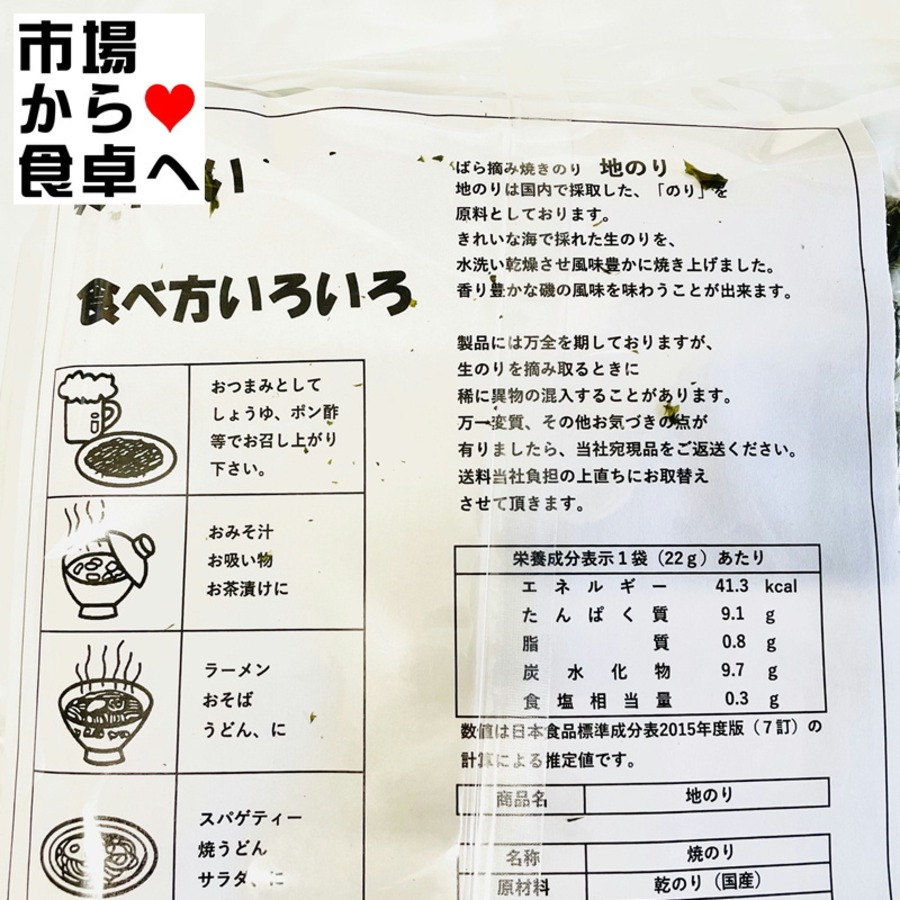 市場
から♥
食卓へ
食べ方いろいろ
おつまみとして
しょうゆ、ポン酢
等でお召し上がり
下さい。
おみそ汁
お吸い物
お茶漬けに
ラーメン
おそば
うどん、に
スパゲティー
焼うどん
サラダ、に
ばら摘み焼きのり 地のり
地のりは国内で採取した、「のり」を
原料としております。
きれいな海で採れた生のりを、
水洗い乾燥させ風味豊かに焼き上げました。
香り豊かな磯の風味を味わうことが出来ます。
製品には万全を期しておりますが、
生のりを摘み取るときに
稀に異物の混入することがあります。
万一変質、その他お気づきの点が
有りましたら、当社宛現品をご返送ください。
送料当社負担の上直ちにお取替え
させて頂きます。
栄養成分表示1袋（22g）あたり
エネルギー 41.3 kcal
たんぱく質 9.1 g
脂質 0.8 g
炭水化物 9.7 g
食塩相当量 0.3 g
数値は日本食品標準成分表2015年度版（7訂）の
計算による推定値です。
商品名 地のり
名称 焼のり
原材料 乾のり（国産）